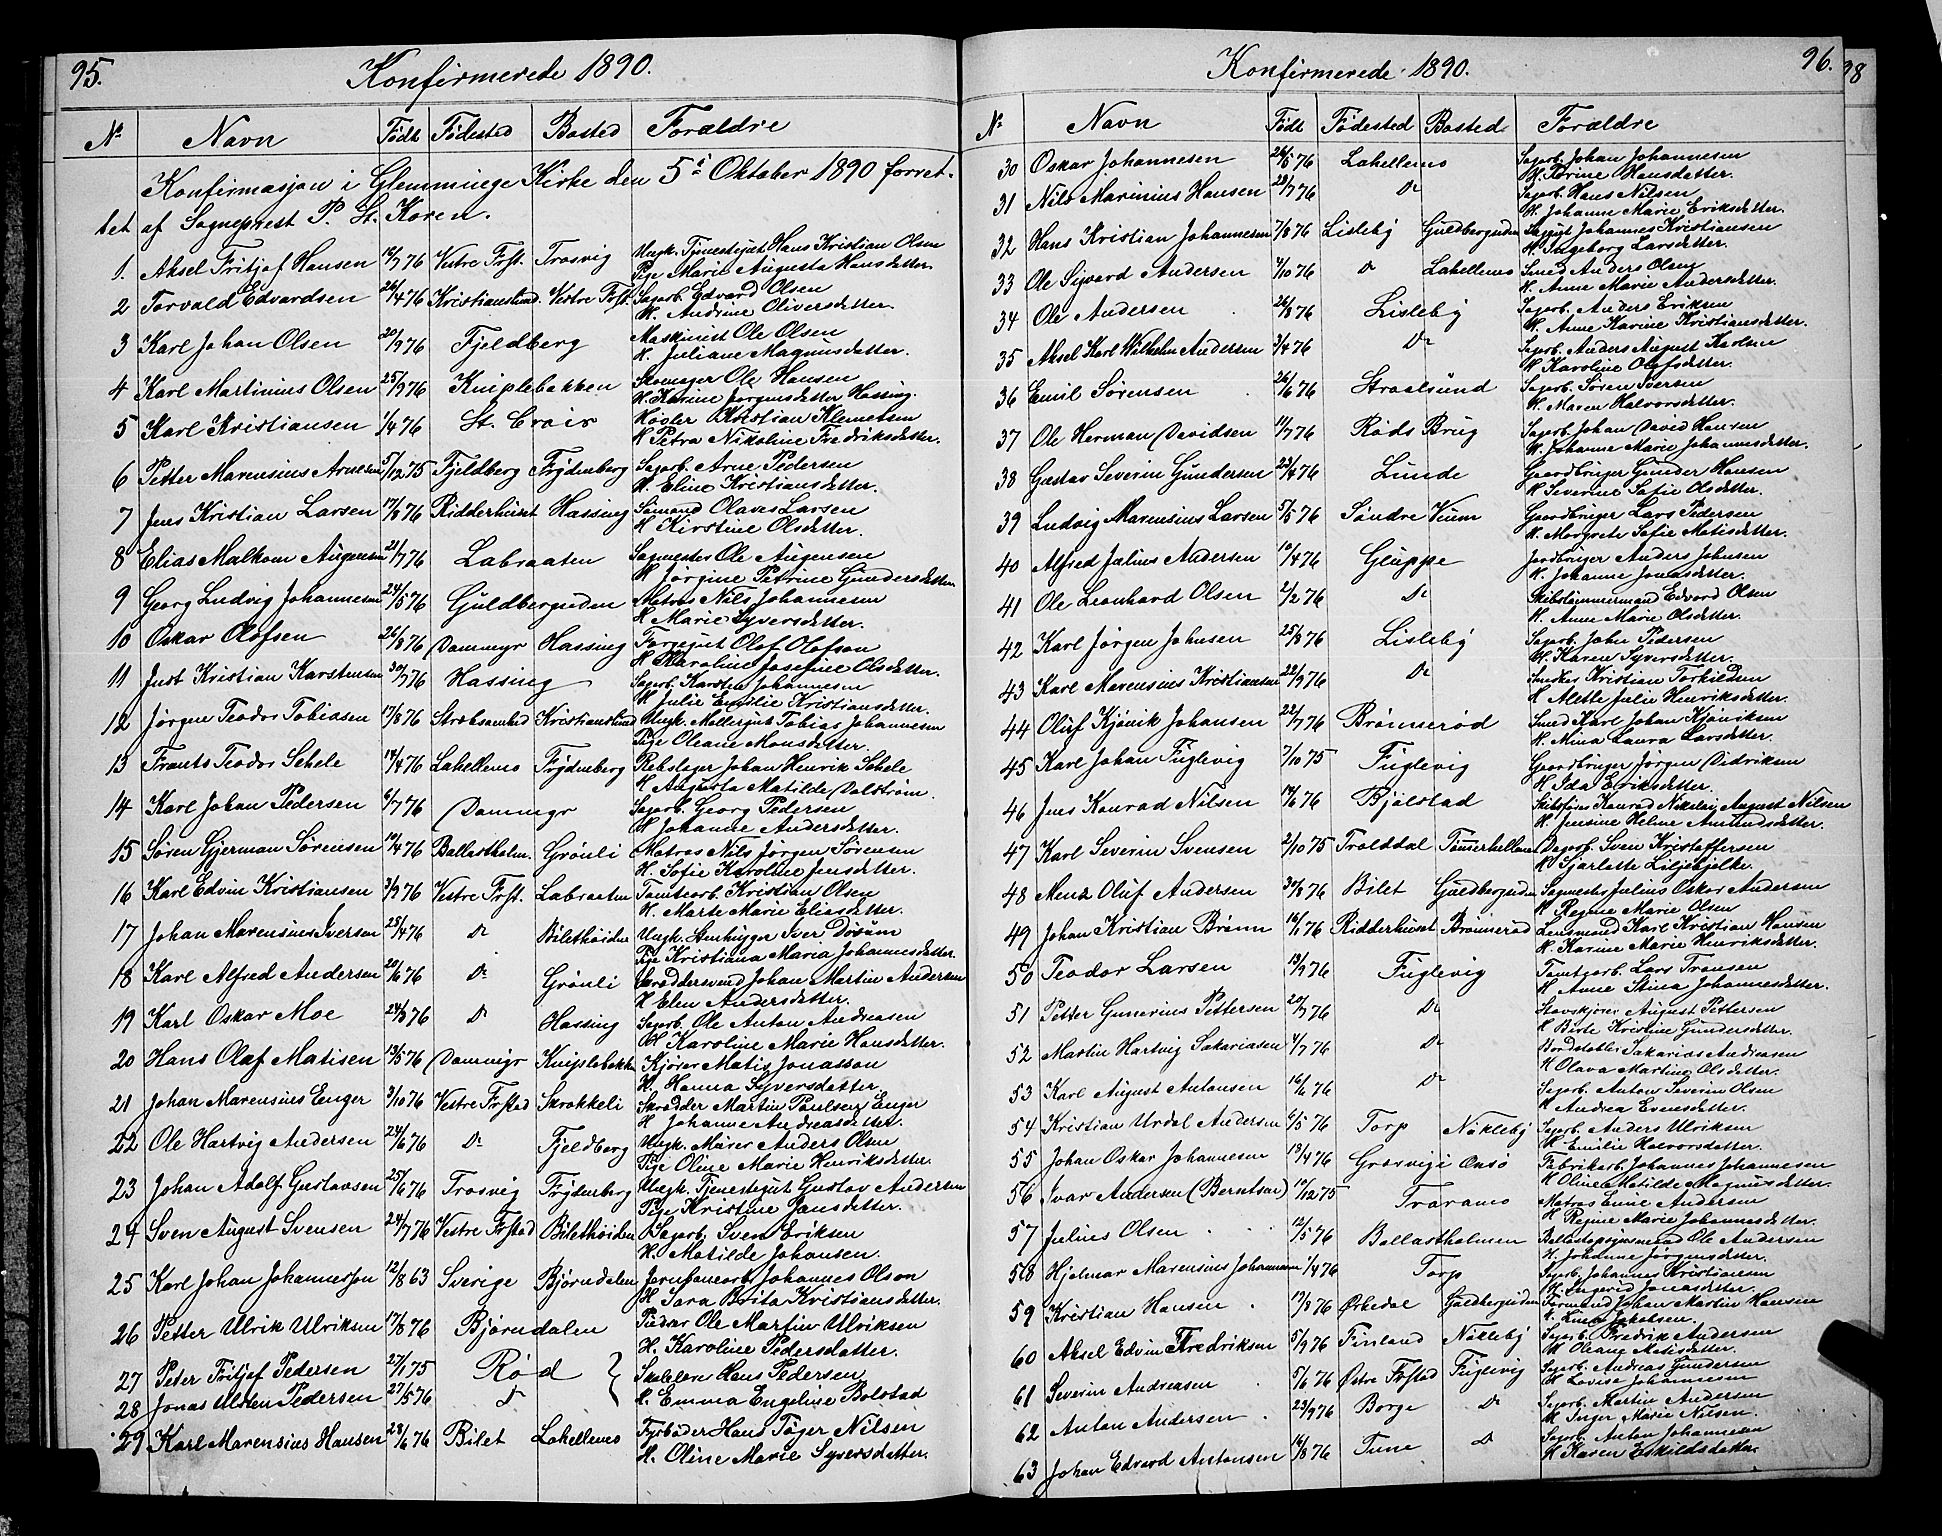 95. Konfirmerede 1890.
№ Navn Født Fødested Bosted Forældre
Konfirmasjon i Glemminge Kirke den 5te Oktober 1890 forret-
tet af Sogneprest P. St. Koren.
1. Aksel Fritjof Hansen 76 Vestre Frst. Trosvig Uegk. Tjenestegut Hans Kristian Olsen
Pige Marie Augusta Hansdatter.
2 Torvald Edvardsen 26/4 76 Kristianslund Vestre Frst. Sagarb. Edvard Olsen
H. Andrine Oliversdatter.
3 Karl Johan Olsen 22/9 76 Fjeldberg Maskinist Ole Olsen
H. Juliane Magnusdatter.
4 Karl Martinius Olsen 25/9 76 Kniplebakken Skomager Ole Hansen
H. Karine Jørgensdatter Hassing.
5 Karl Kristiansen 1/4 76 St. Croix Høvler Kristian Klemetsen
H Petra Nikoline Fredriksdatter.
6 Petter Marensius Arnesen 5/12 75 Fjeldberg Frydenberg Sagarb. Arne Pedersen
H. Eline Kristiansdatter.
7 Jens Kristian Larsen 76 Ridderhuset Hassing Sømand Olaves Larsen
H Kirstine Olsdatter.
8 Elias Malkom Augensen 21/7 76 Labraaten Sagmester Ole Augensen
H Jørgine Petrine Gundersdatter
9 Georg Ludvig Johannesen 24/5 76 Guldbergsiden Matros Nils Johannesen
H Marie Syversdatter.
10 Oskar Olofsen 26/8 76 Dammyr Hassing Farvegut Olof Olofson
H Karoline Josefine Olsdatter.
11 Just Kristian Karstensen 30/7 76 Hassing Sagarb. Karsten Johannesen
H Julie Emilie Kristiansdatter.
12 Jørgen Teodor Tobiasen 17/8 76 Kristianslund Uegk. Møllergut Tobias Johannesen
Pige Oleane Monsdatter.
13 Frants Teodor Schele 14/4 76 Lahellemo Frydenberg Rebslager Johan Henrik Schele
H Augusta Matilde Dalstrøm.
14 Karl Johan Pedersen 6/7 76 Dammyr Sagarb. Georg Pedersen
H Johanne Andersdatter.
15 Søren Gjerman Sørensen 10/4 76 Ballastholm. Grønli Matros Nils Jørgen Sørensen
H. Sofie Karoline Jensdatter.
16 Karl Edvin Kristiansen 3/9 76 Vestre Frst. Labraaten Tomtearb. Kristian Olsen
H. Marte Marie Eliasdatter.
17 Johan Marensius Iversen 25/4 76 Do Bilethøiden Uegk. Stenhugger Iver Dørum
Pige Kristiana Maria Johannesdatter.
18 Karl Alfred Andersen 22/6 76 Do Grønli Skræddersvend Johan Martin Andersen
H Elen Andersdatter.
19 Karl Oskar Moe 24/8 76 Do Hassing Sagarb. Ole Anton Andreasen
H Karoline Marie Hansdatter.
20 Hans Olaf Matisen 13/5 76 Dammyr Kniplebakken Kjører Matis Jonasson
H. Hanna Syversdatter.
21 Johan Marensius Enger 3/10 76 Vestre Frstad Skrokkeli Skrædder Martin Paulsen Enger
H Johanne Andreasdatter.
22 Ole Hartvig Andersen 24/6 76 Do Fjeldberg Uegk. Murer Anders Olsen
Pige Oline Marie Henriksdatter.
23 Johan Adolf Gustavsen 25/6 76 Trosvig Frydenberg Uegk. Tjenestegut Gustav Andersen
Pige Kristine Jansdatter.
24 Sven August Svensen 24/7 76 Vestre Frstad Bilethøiden Sagarb. Sven Eriksen
H. Matilde Johansen.
25 Karl Johan Johannesson 12/8 63 Sverige Bjørndalen Jernbanearb. Johannes Olson
H Sara Brita Kristiansdatter.
26 Petter Ulrik Ulriksen 17/8 76 Bjørndalen Ole Martin Ulriksen
H. Karoline Pedersdatter.
27 Peter Fritjof Pedersen 27/1 75 Rød } Hans Pedersen
28 Jonas Pedersen 27/5 76 Do H. Emma Engeline Bolstad
29 Karl Marensius Hansen 28/6 76 Bilet Lahellemo Fyrbøder Hans Tøger Nilsen
H. Oline Marie Syversdatter.
Konfirmerede 1890. 96. 98
№ Navn Født Fødested Bosted Forældre
30 Oskar Johannesen 26/5 76 Lahellemo Sagarb. Johan Johannesen
H. Torine Hansdatter.
31 Nils Marinius Hansen 28/7 76 Do Sagarb. Hans Nilsen
H. Johanne Marie Eriksdatter.
32 Hans Kristian Johannesen 7/8 76 Lisleby Guldbergsiden Johannes Kristiansen
H. Ingeborg Larsdatter.
33 Ole Sigvard Andersen 76 Do Lahellemo Smed Anders Olsen
H. Anne Marie Andersdatter.
34 Ole Andersen 26/8 76 Lisleby Sagarb. Anders Eriksen
H. Anne Karine Kristiansdatter.
35 Aksel Karl Wilhelm Andersen 3/4 76 Do Sagarb. Anders August Karlsen
H Karoline Olofsdatter.
36 Emil Sørensen 26/6 76 Straalsund Sagarb. Søren Iversen
H. Maren Halvorsdatter.
37 Ole Herman Davidsen 11/7 76 Røds Brug Sagarb. Johan David Hansen
H. Johanne Marie Johannesdatter.
38 Gustav Severin Gundersen 23/4 76 Lunde Gaardbruger Gunder Hansen
H Severine Sofie Olsdatter.
39 Ludvig Marensius Larsen 5/5 76 Søndre Veum Gaardbruger Lars Pedersen
H. Margrete Sofie Matisdatter.
40 Alfred Julius Andersen 10/4 76 Gluppe Jordbruger Anders Johnsen
H. Johanne Jonasdatter.
41 Ole Leonhard Olsen 2/2 76 Do Skibstømmermand Edvard Olsen
H. Anne Marie Olsdatter.
42 Karl Jørgen Johnsen 25/8 76 Lisleby Sagarb. John Pedersen
H. Karen Syversdatter.
43 Karl Marensius Kristiansen 22/9 76 Do Snedker Kristian Torkildsen
H Alette Julie Henriksdatter.
44 Oluf Kjønik Johansen 22/7 76 Brønnerød Smed Karl Johan Kjøniksen
H. Mina Laura Larsdatter.
45 Karl Johan Fuglevig 7/10 75 Fuglevig Gaardbruger Jørgen Didriksen
H Ida Eriksdatter.
46 Jens Konrad Nilsen 76 Bjølstad Skibsfører Konrad Nikolai August Nilsen
H. Jensine Helene Amundsdatter.
47 Karl Severin Svensen 2/10 75 Trolddal Tømmerhellen Dagarb. Sven Kristoffersen
H Sjarlotte Liljebjelke.
48 Mena Oluf Andersen 30/8 76 Bilet Guldbergsiden Sagmester Julius Oskar Andersen
H Regine Marie Olsen
49 Johan Kristian Brønn 16/1 76 Ridderhuset Brønnerød Lensmand Karl Kristian Hansen
H. Karine Marie Henriksdatter.
50 Teodor Larsen 13/9 76 Fuglevig Tomtearb. Lars Fransen
H Anne Stina Johannesdatter.
51 Petter Gunerius Pettersen 20/7 76 Do Stavskjører August Pettersen
H Birte Kristine Gundersdatter.
52 Martin Hartvig Sakariasen 4/7 76 Do Bordstabler Sakarias Andreasen
H Olava Martine Olsdatter.
53 Karl August Antonsen 16/6 76 Do Sagarb. Anton Severin Olsen
H Andrea Evensdatter.
54 Kristian Urdal Andersen 6/5 76 Torp Nøkleby Sagarb. Anders Ulriksen
H Emilie Halvorsdatter.
55 Johan Oskar Johannesen 13/4 76 Græsvig i Onsø Fabrikarb. Johannes Johannesen
H Oline Matilde Magnusdatter.
56 Ivar Andersen (Berntsen) 10/12 75 Traramo Matros Emil Andersen
H Regine Marie Johannesdatter.
57 Julius Olsen 12/5 76 Ballastholmen Ballastopsynsmand Ole Andersen
H. Johanne Jørgensdatter.
58 Hjelmar Marensius Johannesen 1/4 76 Torp Sagarb. Johannes Kristiansen
H Ingerid Jonasdatter.
59 Kristian Hansen 17/8 76 Ørkedal Guldbergsiden Formand Johan Martin Hansen
H. Jakobsen.
60 Aksel Edvin Fredriksen 5/9 76 Finland Nøkleby Sagarb. Fredrik Andersen
H Oleane Matisdatter.
61 Severin Andreasen 5/6 76 Østre Frstad Fuglevig Sagarb. Andreas Gundersen
H Lovise Johannesen
62 Anton Andersen 23/9 76 Borge Do Sagarb. Martin Andersen
H Inger Marie Nilsen.
63 Johan Edvard Antonsen 14/8 76 Tune Do Sagarb. Anton Johannesen
H Karen Eskildsdatter